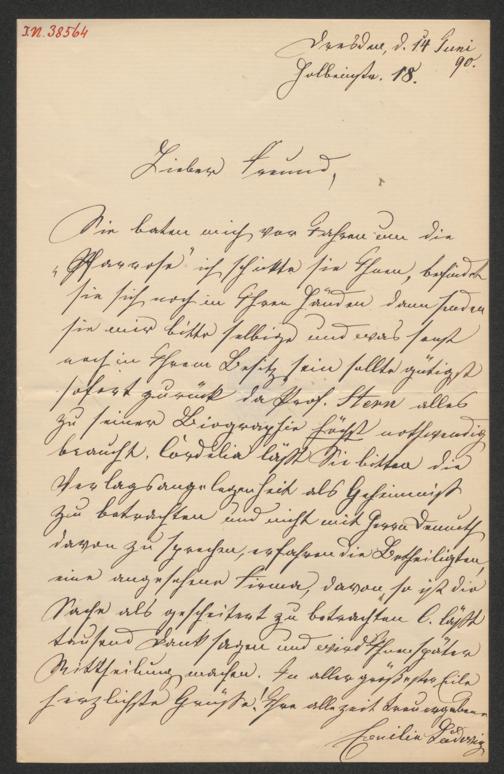 I.N. 38564
Dresden, d. 14 Juni
90.
Holbeinstr. 18.
Lieber Freund,
Sie baten mich vor Jahren um die
"Pfarrose" ich schickte sie Ihnen, befindet
sie sich noch in Ihren Händen dann senden
sie mir bitte selbige und was sonst
noch in Ihrem Besitz sein sollte gütigst
sofort zurück da Prof. Stern alles
zu seiner Biographie höchst nothwendig
braucht. Cordelia läßt Sie bitten die
Verlagsangelegenheit als Geheimniß
zu betrachten und nicht mit Herrn
davon zu sprechen, erfahren die Betheiligten,
eine angesehene Firma, davon, so ist die
Sache als gescheitert zu betrachten C. läßt
tausend Dank sagen und wird Ihnen später
Mittheilung machen. In aller größester Eile
herzlichste Grüße! Ihre allezeit treu ergebene
Emilie Ludwig